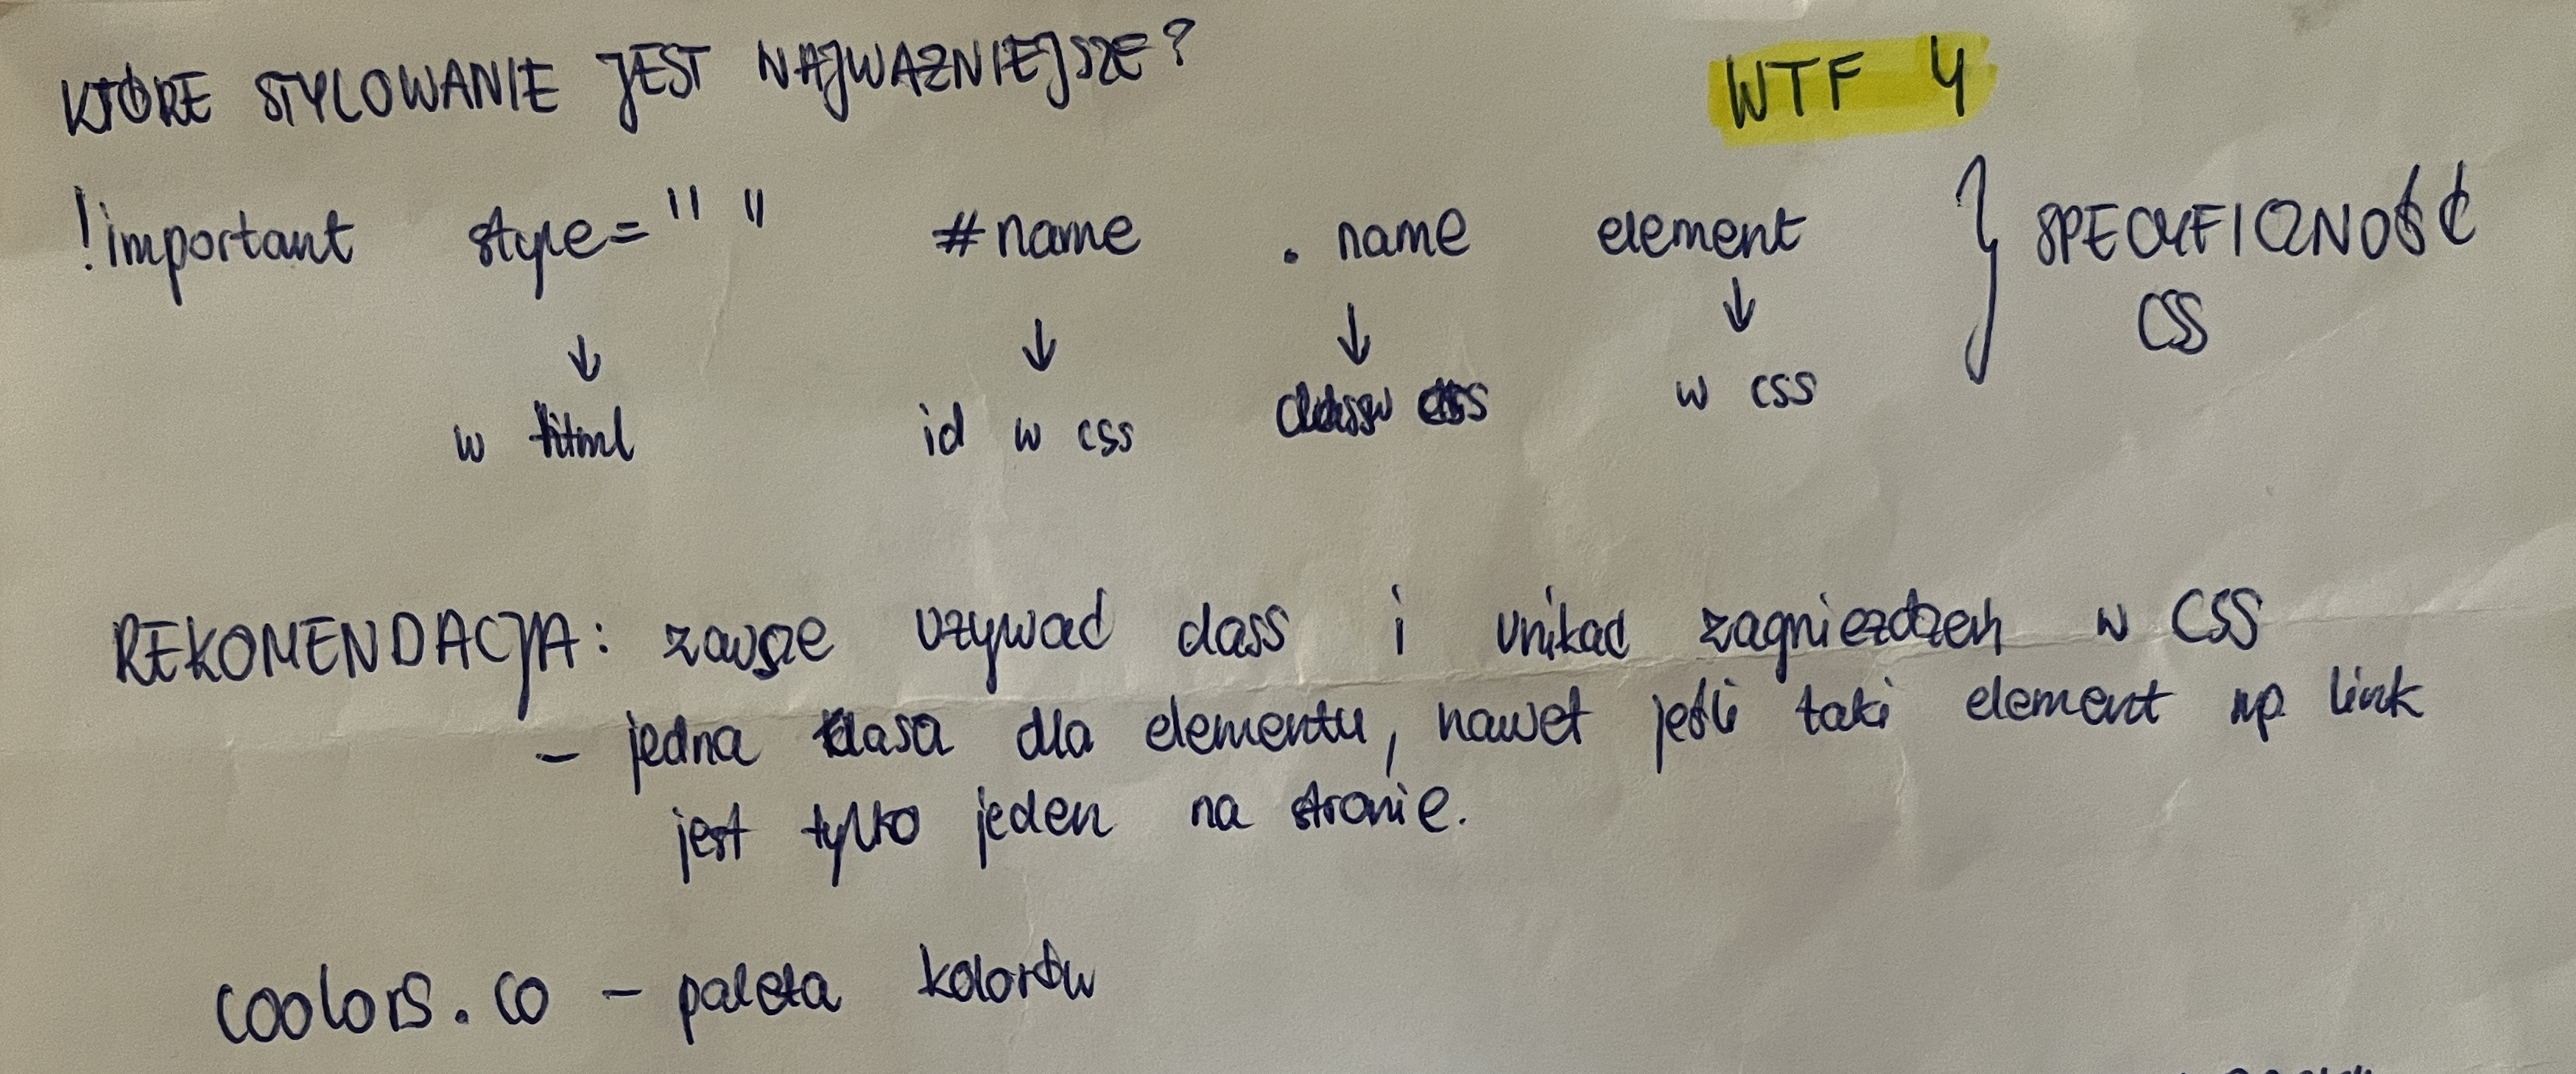 KTÓRE STYLOWANIE JEST NAJWAŻNIEJSZE?
WTF 4
!important style=" " #name . name element } SPECYFICZNOŚĆ CSS
↓ ↓ ↓ ↓
w html id w css class w css w css
REKOMENDACJA: zawsze używać class i unikać zagnieżdżeń w CSS
– jedna klasa dla elementu, nawet jeśli taki element np. link
jest tylko jeden na stronie.
coolors.co – paleta kolorów